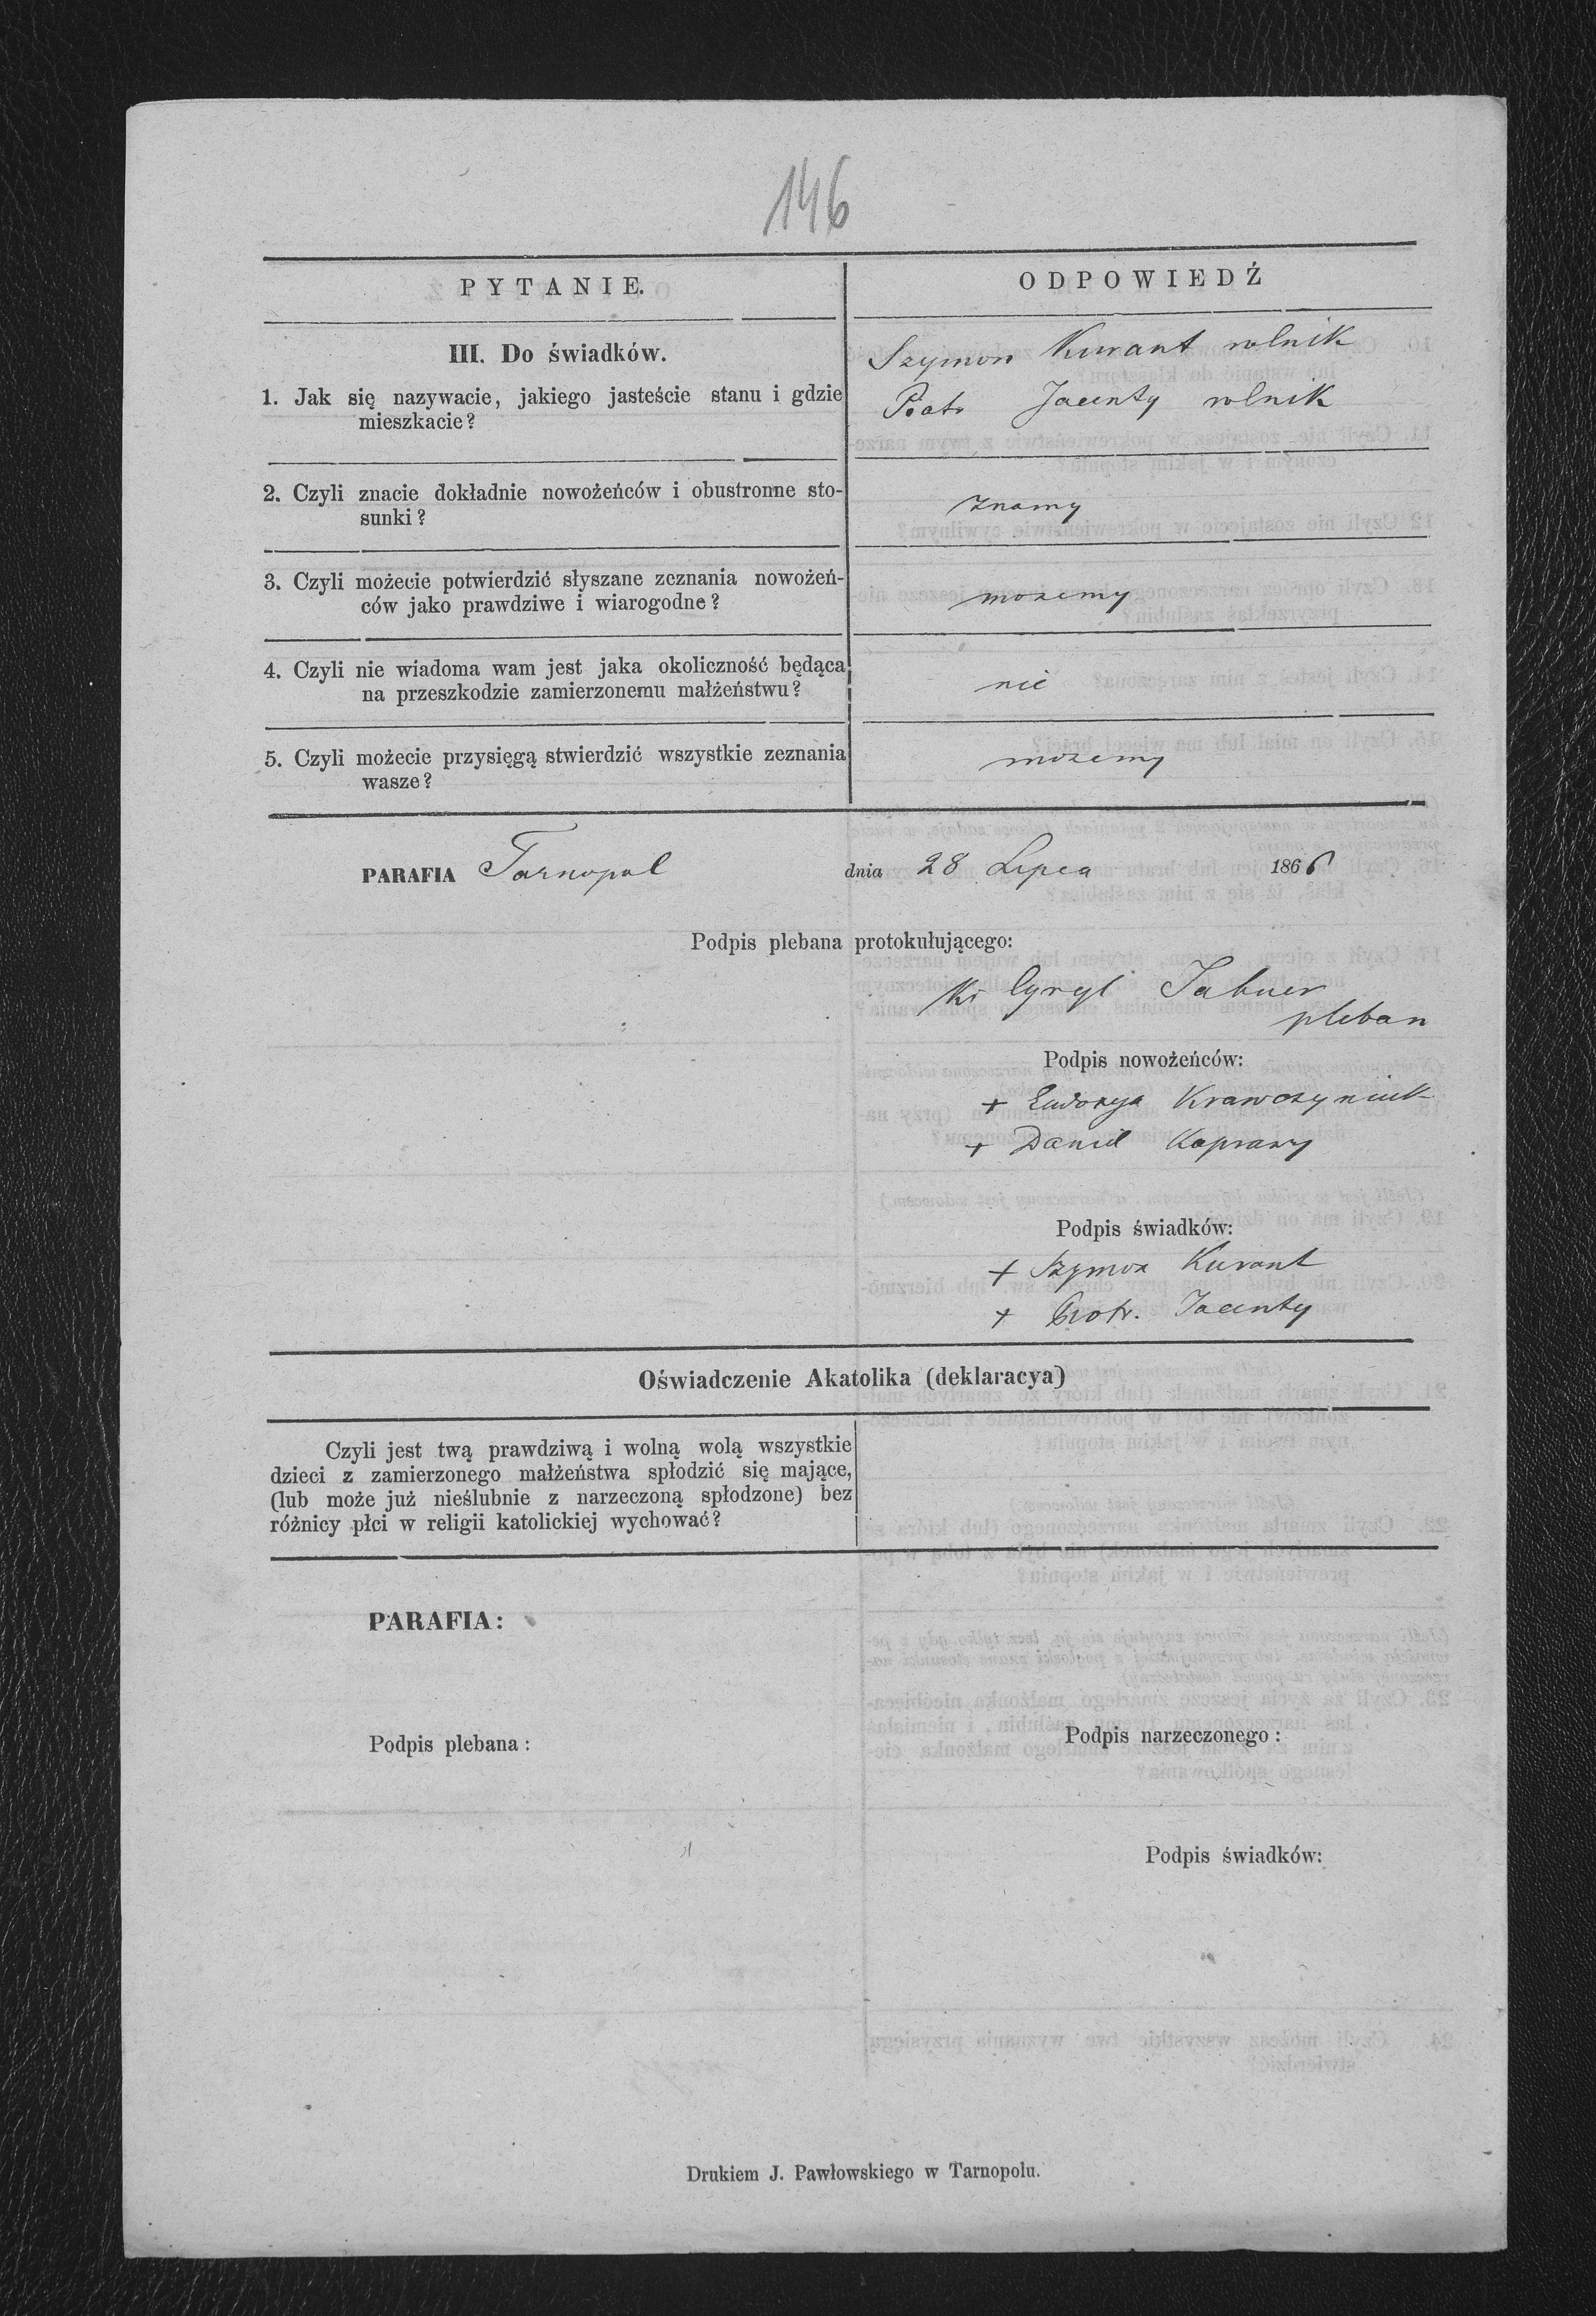 146
PYTANIE.
ODPOWIEDŹ
III. Do świadków.
1. Jak się nazywacie, jakiego jasteście stanu i gdzie
mieszkacie?
Szymon Kurant rolnik
Piotr Jacenty rolnik
2. Czyli znacie dokładnie nowożeńców i obustronne sto-
sunki?
znamy
3. Czyli możecie potwierdzić słyszane zeznania nowożeń-
ców jako prawdziwe i wiarogodne?
mozemy
4. Czyli nie wiadoma wam jest jaka okoliczność będąca
na przeszkodzie zamierzonemu małżeństwu?
nie
5. Czyli możecie przysięgą stwierdzić wszystkie zeznania
wasze?
mozemy
PARAFIA Tarnopol dnia 28 Lipca 1866
Podpis plebana protokułującego:
Cyryl
pleban
Podpis nowożeńców:
+ Krawczyniuk
+ Daniel Kaprawy
Podpis świadków:
+ Szymon Kurant
+ Piotr. Jacenty
Oświadczenie Akatolika (deklaracya)
Czyli jest twą prawdziwą i wolną wolą wszystkie
dzieci z zamierzonego małżeństwa spłodzić się mające,
(lub może już nieślubnie z narzeczoną spłodzone) bez
różnicy płci w religii katolickiej wychować?
PARAFIA:
Podpis plebana:
Podpis narzeczonego:
Podpis świadków:
Drukiem J. Pawłowskiego w Tarnopolu.